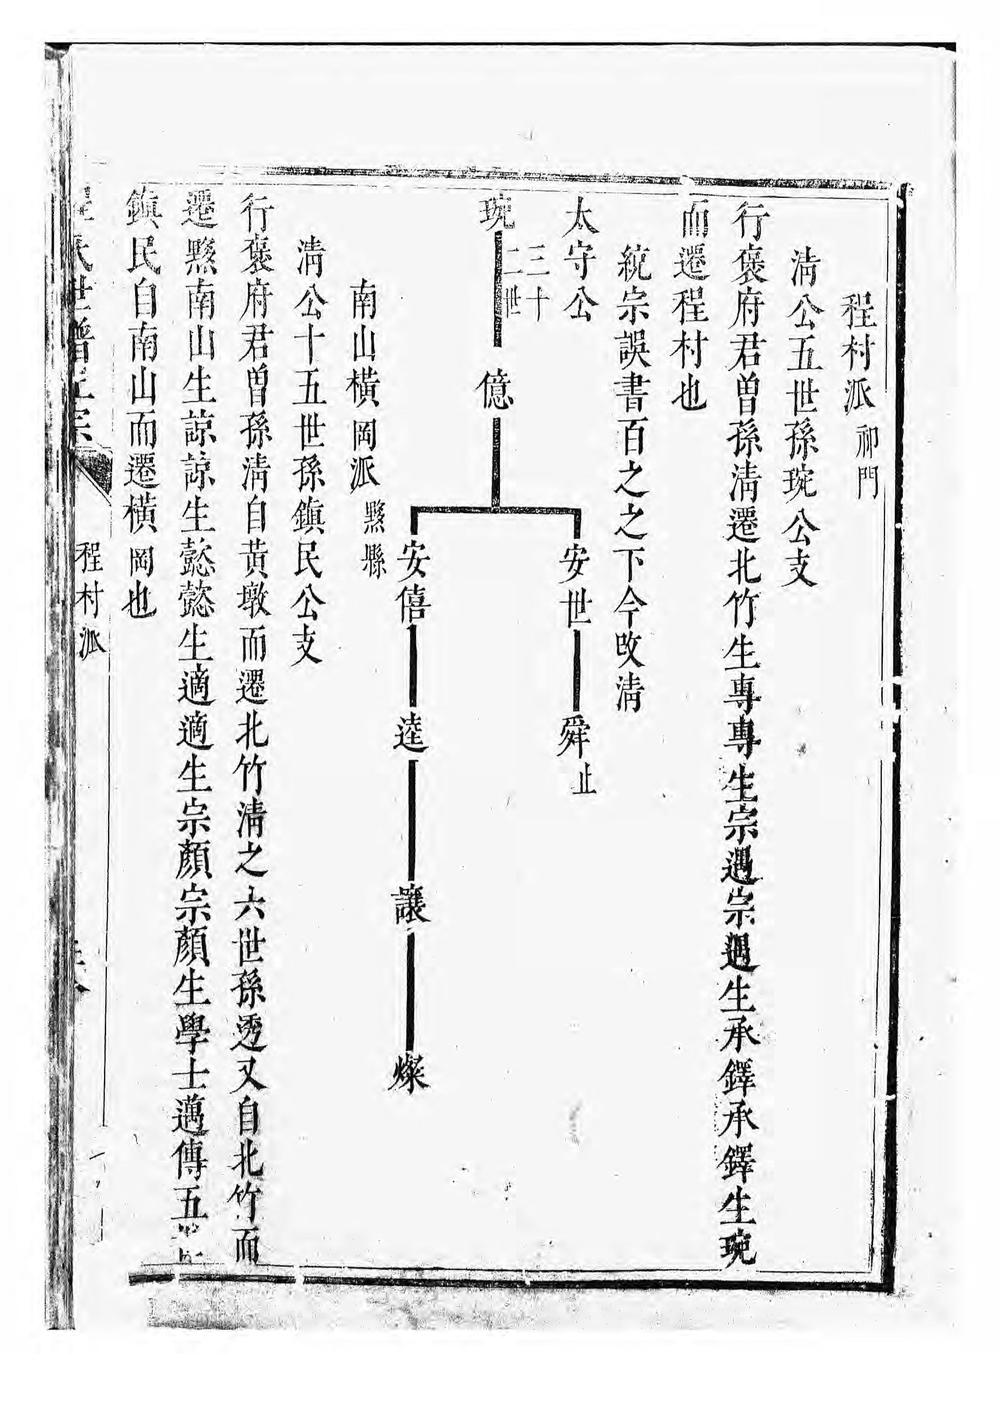 程村派 祁門
淸公五世孫琬公支
行褒府君曾孫淸遷北竹生專專生宗遇宗遇生承鐸承鐸生琬
而遷程村也
統宗誤書百之之下今改淸
太守公
琬 三十二世
億
安世
舜 止
安僖
逵
讓
燦
南山橫岡派 黟縣
淸公十五世孫鎭民公支
行褒府君曾孫淸自黃墩而遷北竹淸之六世孫透又自北竹而
遷黟南山生諒諒生懿懿生適適生宗顏宗顏生學士邁傳五
鎭民自南山而遷橫岡也
程氏世譜正宗
程村派